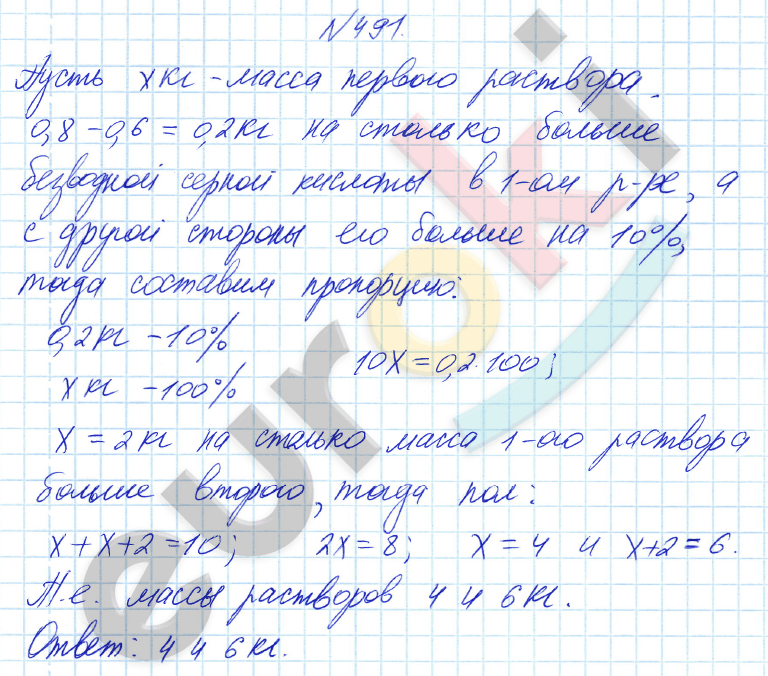 №491.
Пусть x кг - масса первого раствора.
0,8 - 0,6 = 0,2 кг на столько больше
безводной серной кислоты в 1-ом р-ре, а
с другой стороны его больше на 10%,
тогда составим пропорцию:
0,2 кг - 10%
x кг - 100%
10x = 0,2·100;
x = 2 кг на столько масса 1-ого раствора
больше второго, тогда пол:
x + x + 2 = 10; 2x = 8; x = 4 и x+2 = 6.
Т.е. массы растворов 4 и 6 кг.
Ответ: 4 и 6 кг.
euroki